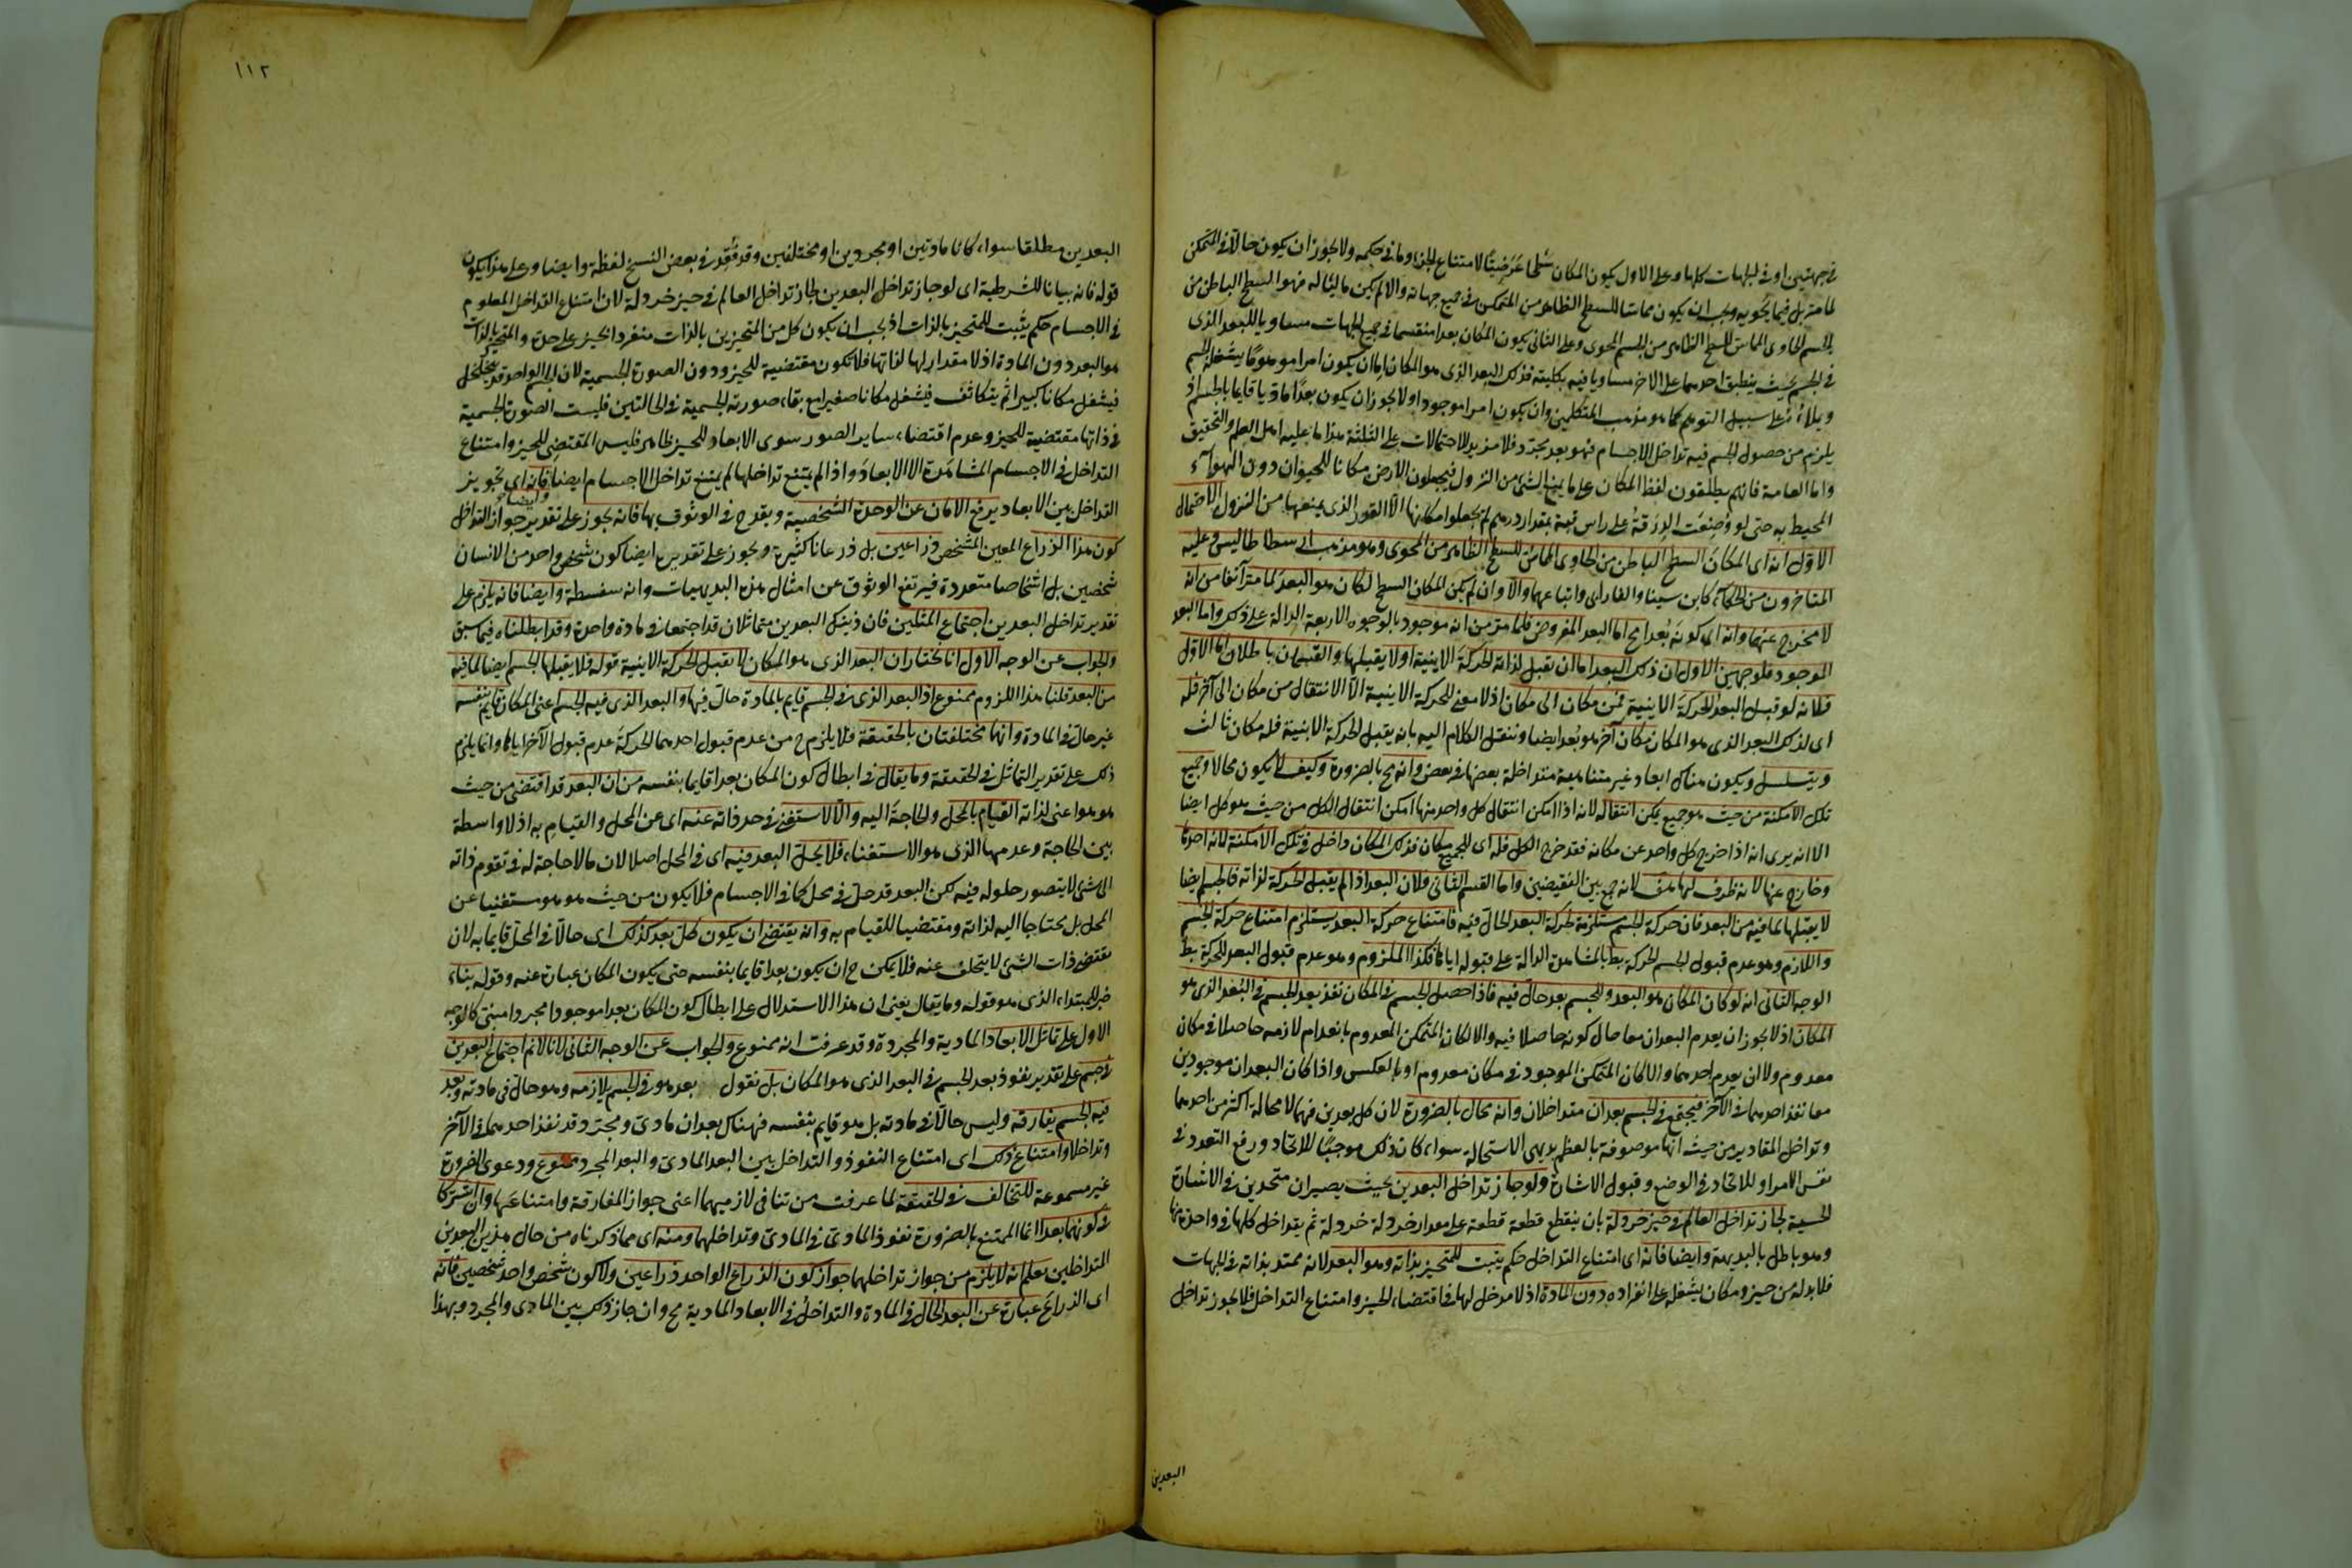 في جهتين او في الجهات كلها وعلى الاول يكون المكان سطحا عرضيا لامتناع الجزء وما في حكمه ولا يجوز ان يكون حالا في المتمكن
لما مر بل فيما يحويه ويجب ان يكون مماسا للسطح الظاهر من المتمكن في جميع جهاته والا لم يكن ماليا له فهو السطح الباطن من
الجسم الحاوى المماس للسطح الظاهر من الجسم المحوى وعلى الثانى يكون المكان بعدا منقسما في جميع الجهات مساويا للبعد الذى
في الجسم بحيث ينطبق احدهما على الاخر مساويا فيه بكليته فذلك البعد الذى هو المكان اما ان يكون امرا موهوما يشغله الجسم
ويملاه على سبيل التوهم كما هو مذهب المتكلمين وان يكون امرا موجودا ولا يجوز ان يكون بعدا ماديا قايما بالجسم اذ
يلزم من حصول الجسم فيه تداخل الاجسام فهو بعد مجرد فلا مزيد للاحتمالات على الثلثة هذا ما عليه اهل العلم والتحقيق
واما العامة فانهم يطلقون لفظ المكان على ما يمنع الشئ من النزول فيجعلون الارض مكانا للحيوان دون الهواء
المحيط به حتى لو وضعت الدرقة على راس قبة بمقدار درهم لم يجعلوا مكانها الا القدر الذى يمنعها من النزول الاحتمال
الاول انه اى المكان السطح الباطن من الحاوى المماس للسطح الظاهر من المحوى وهو مذهب ارسطاطاليس وعليه
المتاخرون من الحكماء كابن سينا والفارابى واتباعهما والا وان لم يكن المكان السطح لكان هو البعد لما مر آنفا من انه
لا مخرج عنهما وانه اى كونه بعدا مح اما البعد المفروض فلما مر من انه موجود بالوجوه الاربعة الدالة على ذلك واما البعد
الموجود فلوجهين الاول ان ذلك البعد اما ان يقبل لذاته الحركة الاينية او لا يقبلها والقسمان باطلان اما الاول
فلانه لو قبل البعد الحركة الاينية فمن مكان الى مكان اذ لا معنى للحركة الاينية الا الانتقال من مكان الى آخر فله
اى لذلك البعد الذى هو المكان مكان آخر هو بعد ايضا وننقل الكلام اليه بانه يقبل الحركة الاينية فله مكان ثالث
ويتسلسل ويكون هناك ابعاد غير متناهية متداخلة بعضها في بعض وانه مح بالضرورة وكيف لا يكون محالا وجميع
تلك الامكنة من حيث هو جميع يمكن انتقاله لانه اذا امكن انتقال كل واحد منها امكن انتقال الكل من حيث هو كل ايضا
الا انه يرى انه اذا خرج كل واحد عن مكانه فقد خرج الكل فله اى للجميع مكان فذلك المكان داخل في تلك الامكنة لانه احدها
وخارج عنها لانه ظرف لها هف لانه جمع بين النقيضين واما القسم الثانى فلان البعد اذا لم يقبل الحركة لذاته فالجسم ايضا
لا يقبلها لما فيه من البعد فان حركة الجسم مستلزمة لحركة البعد الحال فيه فامتناع حركة البعد يستلزم امتناع حركة الجسم
واللازم وهو عدم قبول الجسم للحركة بط بالمشاهدة الدالة على قبوله اياها فكذا الملزوم وهو عدم قبول البعد للحركة بط
الوجه الثانى انه لو كان المكان هو البعد وللجسم بعد حال فيه فاذا حصل الجسم في المكان نفذ بعد الجسم في البعد الذى هو
المكان اذ لا يجوز ان يعدم البعدان معا حال كونه حاصلا فيه والا لكان المتمكن المعدوم بانعدام لازمه حاصلا في مكان
معدوم ولا ان يعدم احدهما والا لكان المتمكن الموجود في مكان معدوم او بالعكس واذا كان البعدان موجودين
معا نفذ احدهما في الآخر فيجتمع في الجسم بعدان متداخلان وانه محال بالضرورة لان كل بعدين فهما لا محالة اكثر من احدهما
وتداخل المقادير من حيث انها موصوفة بالعظم بديهى الاستحالة سواء كان ذلك موجبا للاتحاد ورفع التعدد في
نفس الامر او للاتحاد في الوضع وقبول الاشارة ولو جاز تداخل البعدين بحيث يصيران متحدين في الاشارة
الحسية لجاز تداخل العالم في حيز خردلة بان ينقطع قطعة قطعة على مقدار خردلة خردلة ثم يتداخل كلها في واحدة منها
وهو باطل بالبديهة وايضا فانه اى امتناع التداخل حكم يثبت للمتحيز بذاته وهو البعد لانه ممتد بذاته في الجهات
فلا بد له من حيز ومكان يشغله على انفراده دون المادة اذ لا مدخل لها في اقتضاء الحيز وامتناع التداخل فلا يجوز تداخل
البعدين
١١٢
البعدين مطلقا سواء كانا ماديين او مجردين او مختلفين وقد فقد في بعض النسخ لفظة وايضا وعلى هذا يكون
قوله فانه بيانا للشرطية اى لو جاز تداخل البعدين لجاز تداخل العالم في حيز خردلة لان امتناع التداخل المعلوم
في الاجسام حكم يثبت للمتحيز بالذات اذ يجب ان يكون كل من المتحيزين بالذات منفردا بحيز على حدة والمتحيز بالذات
هو البعد دون المادة اذ لا مقدار لها لذاتها فلا يكون مقتضية للحيز ودون الصورة الجسمية لان الجسم الواحد قد يتخلخل
فيشغل مكانا كبيرا ثم يتكاثف فيشغل مكانا صغيرا مع بقاء صورته الجسمية في الحالتين فليست الصورة الجسمية
في ذاتها مقتضية للحيز وعدم اقتضاء ساير الصور سوى الابعاد للحيز ظاهر فليس المقتضى للحيز وامتناع
التداخل في الاجسام المشاهدة الا الابعاد واذا لم يمتنع تداخلها لم يمتنع تداخل الاجسام ايضا فانه اى تجويز
وايضا
التداخل بين الابعاد يرفع الامان عن الوحدة الشخصية ويقدح في الوثوق بها فانه يجوز على تقدير جواز التداخل
كون هذا الذراع المعين المشخص ذراعين بل ذرعانا كثيرة ويجوز على تقديره ايضا كون شخص واحد من الانسان
شخصين بل اشخاصا متعددة فيرتفع الوثوق عن امثال هذه البديهيات وانه سفسطة وايضا فانه يلزم على
تقدير تداخل البعدين اجتماع المثلين فان ذينك البعدين متماثلان قد اجتمعا في مادة واحدة وقد ابطلناه فيما سبق
والجواب عن الوجه الاول انا نختار ان البعد الذى هو المكان لا يقبل الحركة الاينية قوله فلا يقبلها الجسم ايضا لما فيه
من البعد قلنا هذا اللزوم ممنوع اذ البعد الذى في الجسم قايم بالمادة حال فيها والبعد الذى فيه الجسم اعنى المكان قايم بنفسه
غير حال في المادة وانهما مختلفتان بالحقيقة فلا يلزم ح من عدم قبول احدهما الحركة عدم قبول الآخر اياها وانما يلزم
ذلك على تقدير التماثل في الحقيقة وما يقال في ابطال كون المكان بعدا قايما بنفسه من ان البعد قد اقتضى من حيث
هو هو اعنى لذاته القيام بالمحل والحاجة اليه والا لاستغنى في حد ذاته عنه اى عن المحل والقيام به اذ لا واسطة
بين الحاجة وعدمها الذى هو الاستغناء فلا يحل البعد فيه اى في المحل اصلا لان ما لا حاجة له في تقوم ذاته
الى شئ لا يتصور حلوله فيه لكن البعد قد حل في محل كما في الاجسام فلا يكون من حيث هو هو مستغنيا عن
المحل بل محتاجا اليه لذاته ومقتضيا للقيام به وانه يقتضى ان يكون كل بعد كذلك اى حالا في المحل قايما به لان
مقتضى ذات الشئ لا يتخلف عنه فلا يمكن ح ان يكون بعدا قايما بنفسه حتى يكون المكان عبارة عنه وقوله بناء
خبر للمبتداء الذى هو قوله وما يقال يعنى ان هذا الاستدلال على ابطال كون المكان بعدا موجودا مجردا مبنى كالوجه
الاول على تماثل الابعاد المادية والمجردة وقد عرفت انه ممنوع والجواب عن الوجه الثانى لانا لانم اجتماع البعدين
في جسم على تقدير نفوذ بعد الجسم في البعد الذى هو المكان بل نقول بعد هو في الجسم يلازمه وهو حال في مادته وبعد
فيه الجسم يفارقه وليس حالا في مادته بل هو قايم بنفسه فهناك بعدان مادى ومجرد قد نفذ احدهما في الآخر
وتداخلا وامتناع ذلك اى امتناع النفوذ والتداخل بين البعد المادى والبعد المجرد ممنوع ودعوى الضرورة
غير مسموعة للتخالف في الحقيقة لما عرفت من تنافى لازميهما اعنى جواز المفارقة وامتناعها وان اشتركا
في كونهما بعدا انما الممتنع بالضرورة نفوذ المادى في المادى وتداخلهما ومنه اى مما ذكرناه من حال هذين البعدين
المتداخلين يعلم انه لا يلزم من جواز تداخلهما جواز كون الذراع الواحد ذراعين ولا كون شخص واحد شخصين فانه
اى الذراع عبارة عن البعد الحال في المادة والتداخل في الابعاد المادية مح وان جاز ذلك بين المادى والمجرد وبهذا